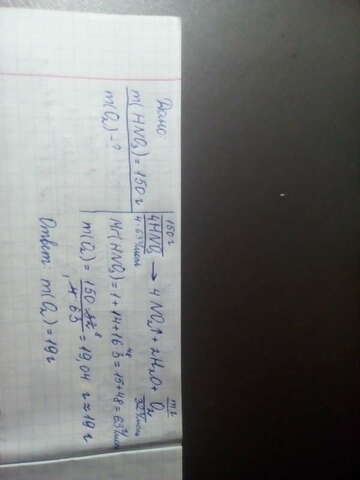 Дано:
m(HNO₃) = 150 г
m(O₂) - ?
150 г m г
4HNO₃ → 4NO₂↑ + 2H₂O + O₂
4·63 г/моль 32 г/моль
Mr(HNO₃) = 1 + 14 + 16·3 = 15 + 48 = 63 г/моль
m(O₂) = 150·32 / 4·63 = 19,04 г ≈ 19 г
Ответ: m(O₂) = 19 г